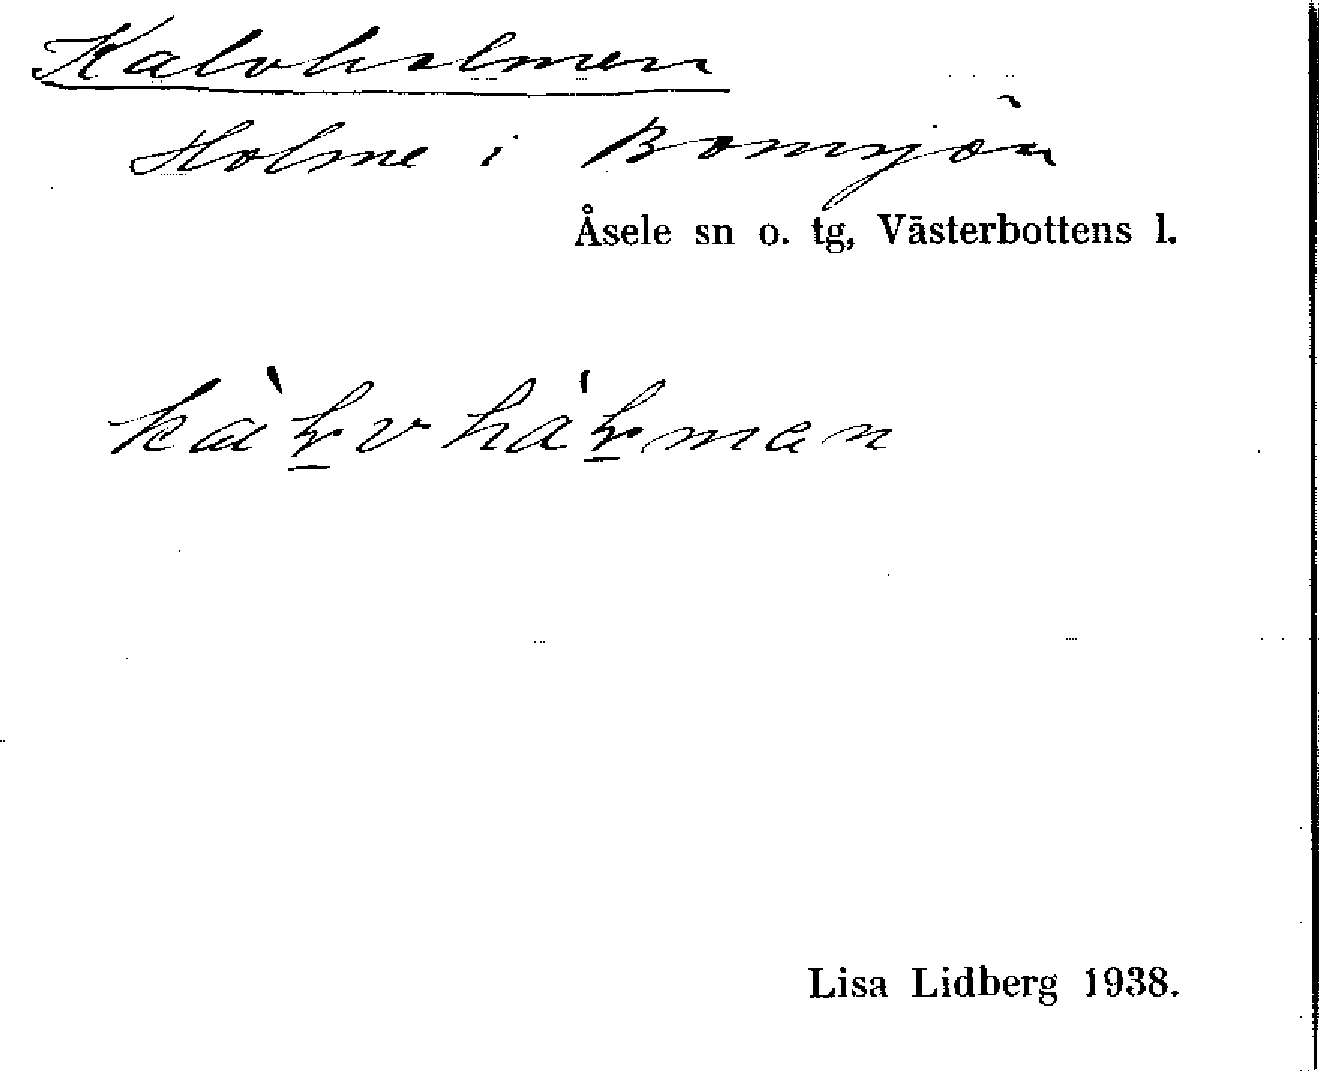 Kalvholmen
Holme i Bomsjön
Åsele sn o. tg, Västerbottens l.
Lisa Lidberg 1938.